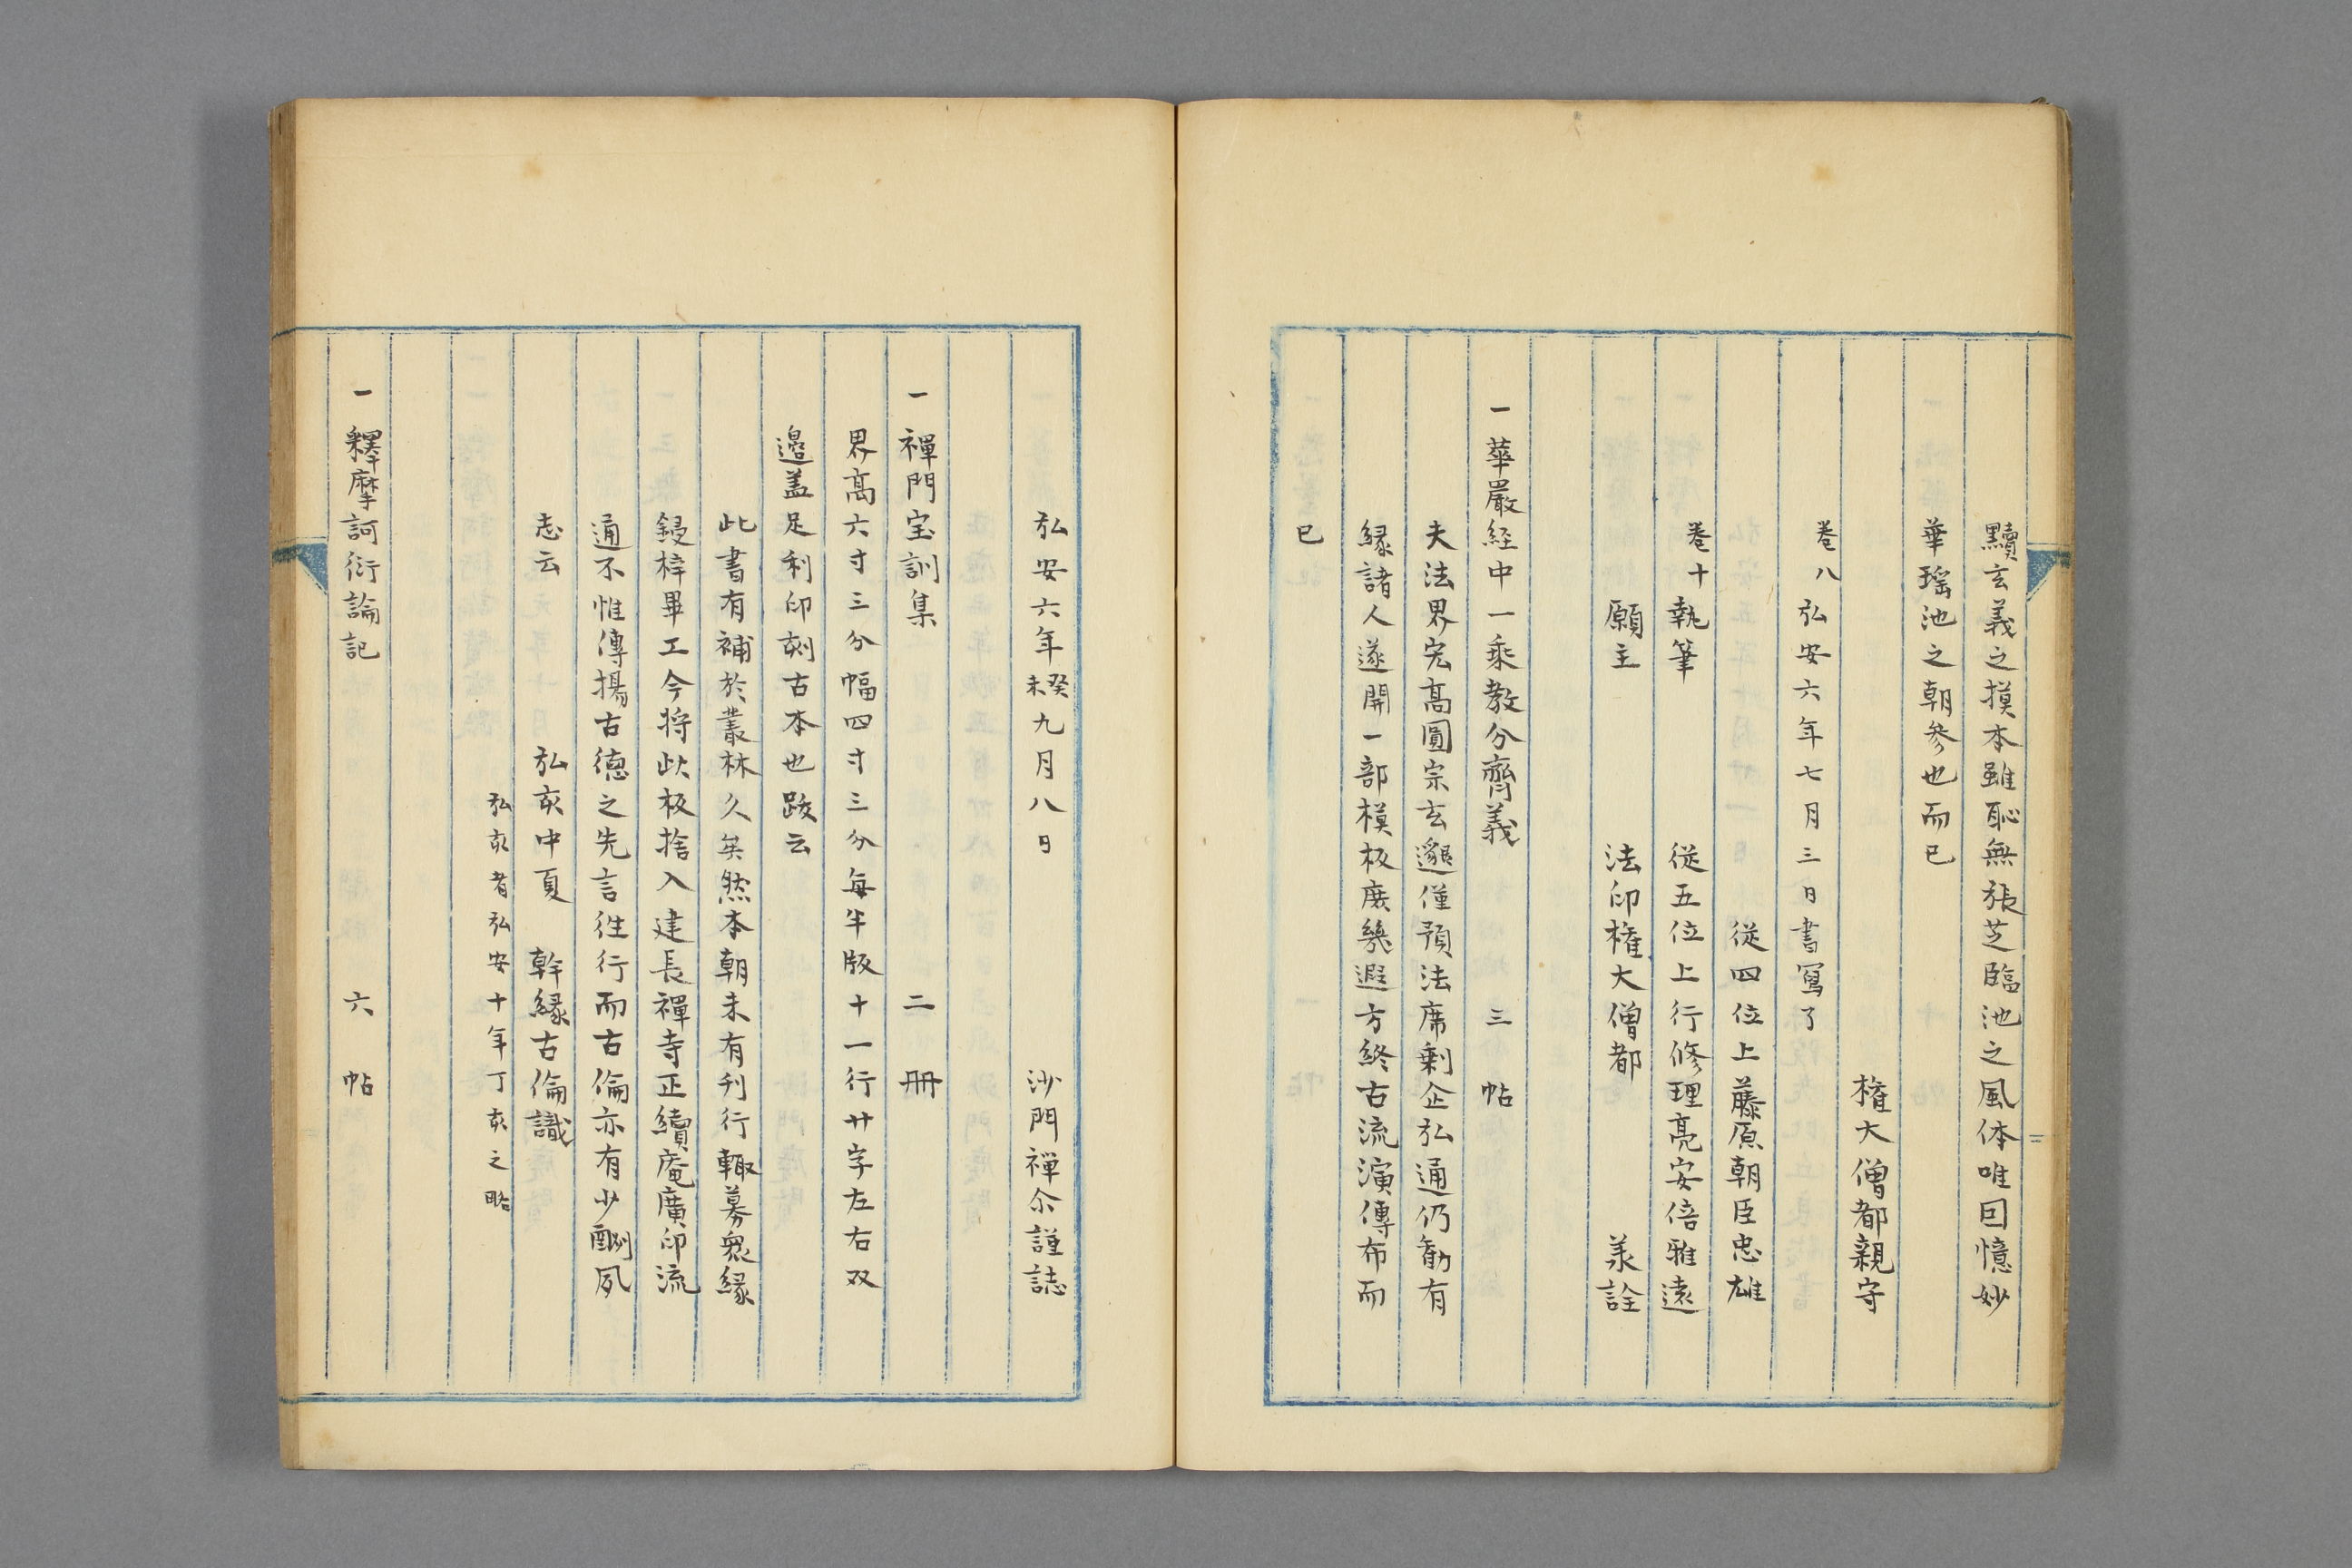 黷玄義之摸本雖恥無張芝臨池之風体唯囙憶妙
華瑶池之朝参也而已
権大僧都親守
巻八弘安六年七月三日書寫了
従四位上藤原朝臣忠雄
巻十執筆　従五位上行修理亮安倍雅遠
願主　法印権大僧都　羕詮
一華嚴経中一乘教分齊義　三帖
夫法界宏高圓宗玄邈僅預法席剩企弘通仍勧有
縁諸人遂開一部模板庶幾遐方終古流演傳布而
已
弘安六年癸未九月八日　沙門禪尒謹誌
一禪門宝訓集　二冊
界高六寸三分幅四寸三分每半版十一行廿字左右双
邉盖足利印刻古本也跋云
此書有補於叢林久矣然本朝未有刋行輙募衆縁
鋟梓畢工今将此板捨入建長禪寺正續庵廣印流
通不惟傳揚古德之先言徃行而古倫亦有少酬夙
志云　弘亥中夏　幹縁古倫識
弘亥者弘安十年丁亥之略
一釋摩訶衍論記　六帖